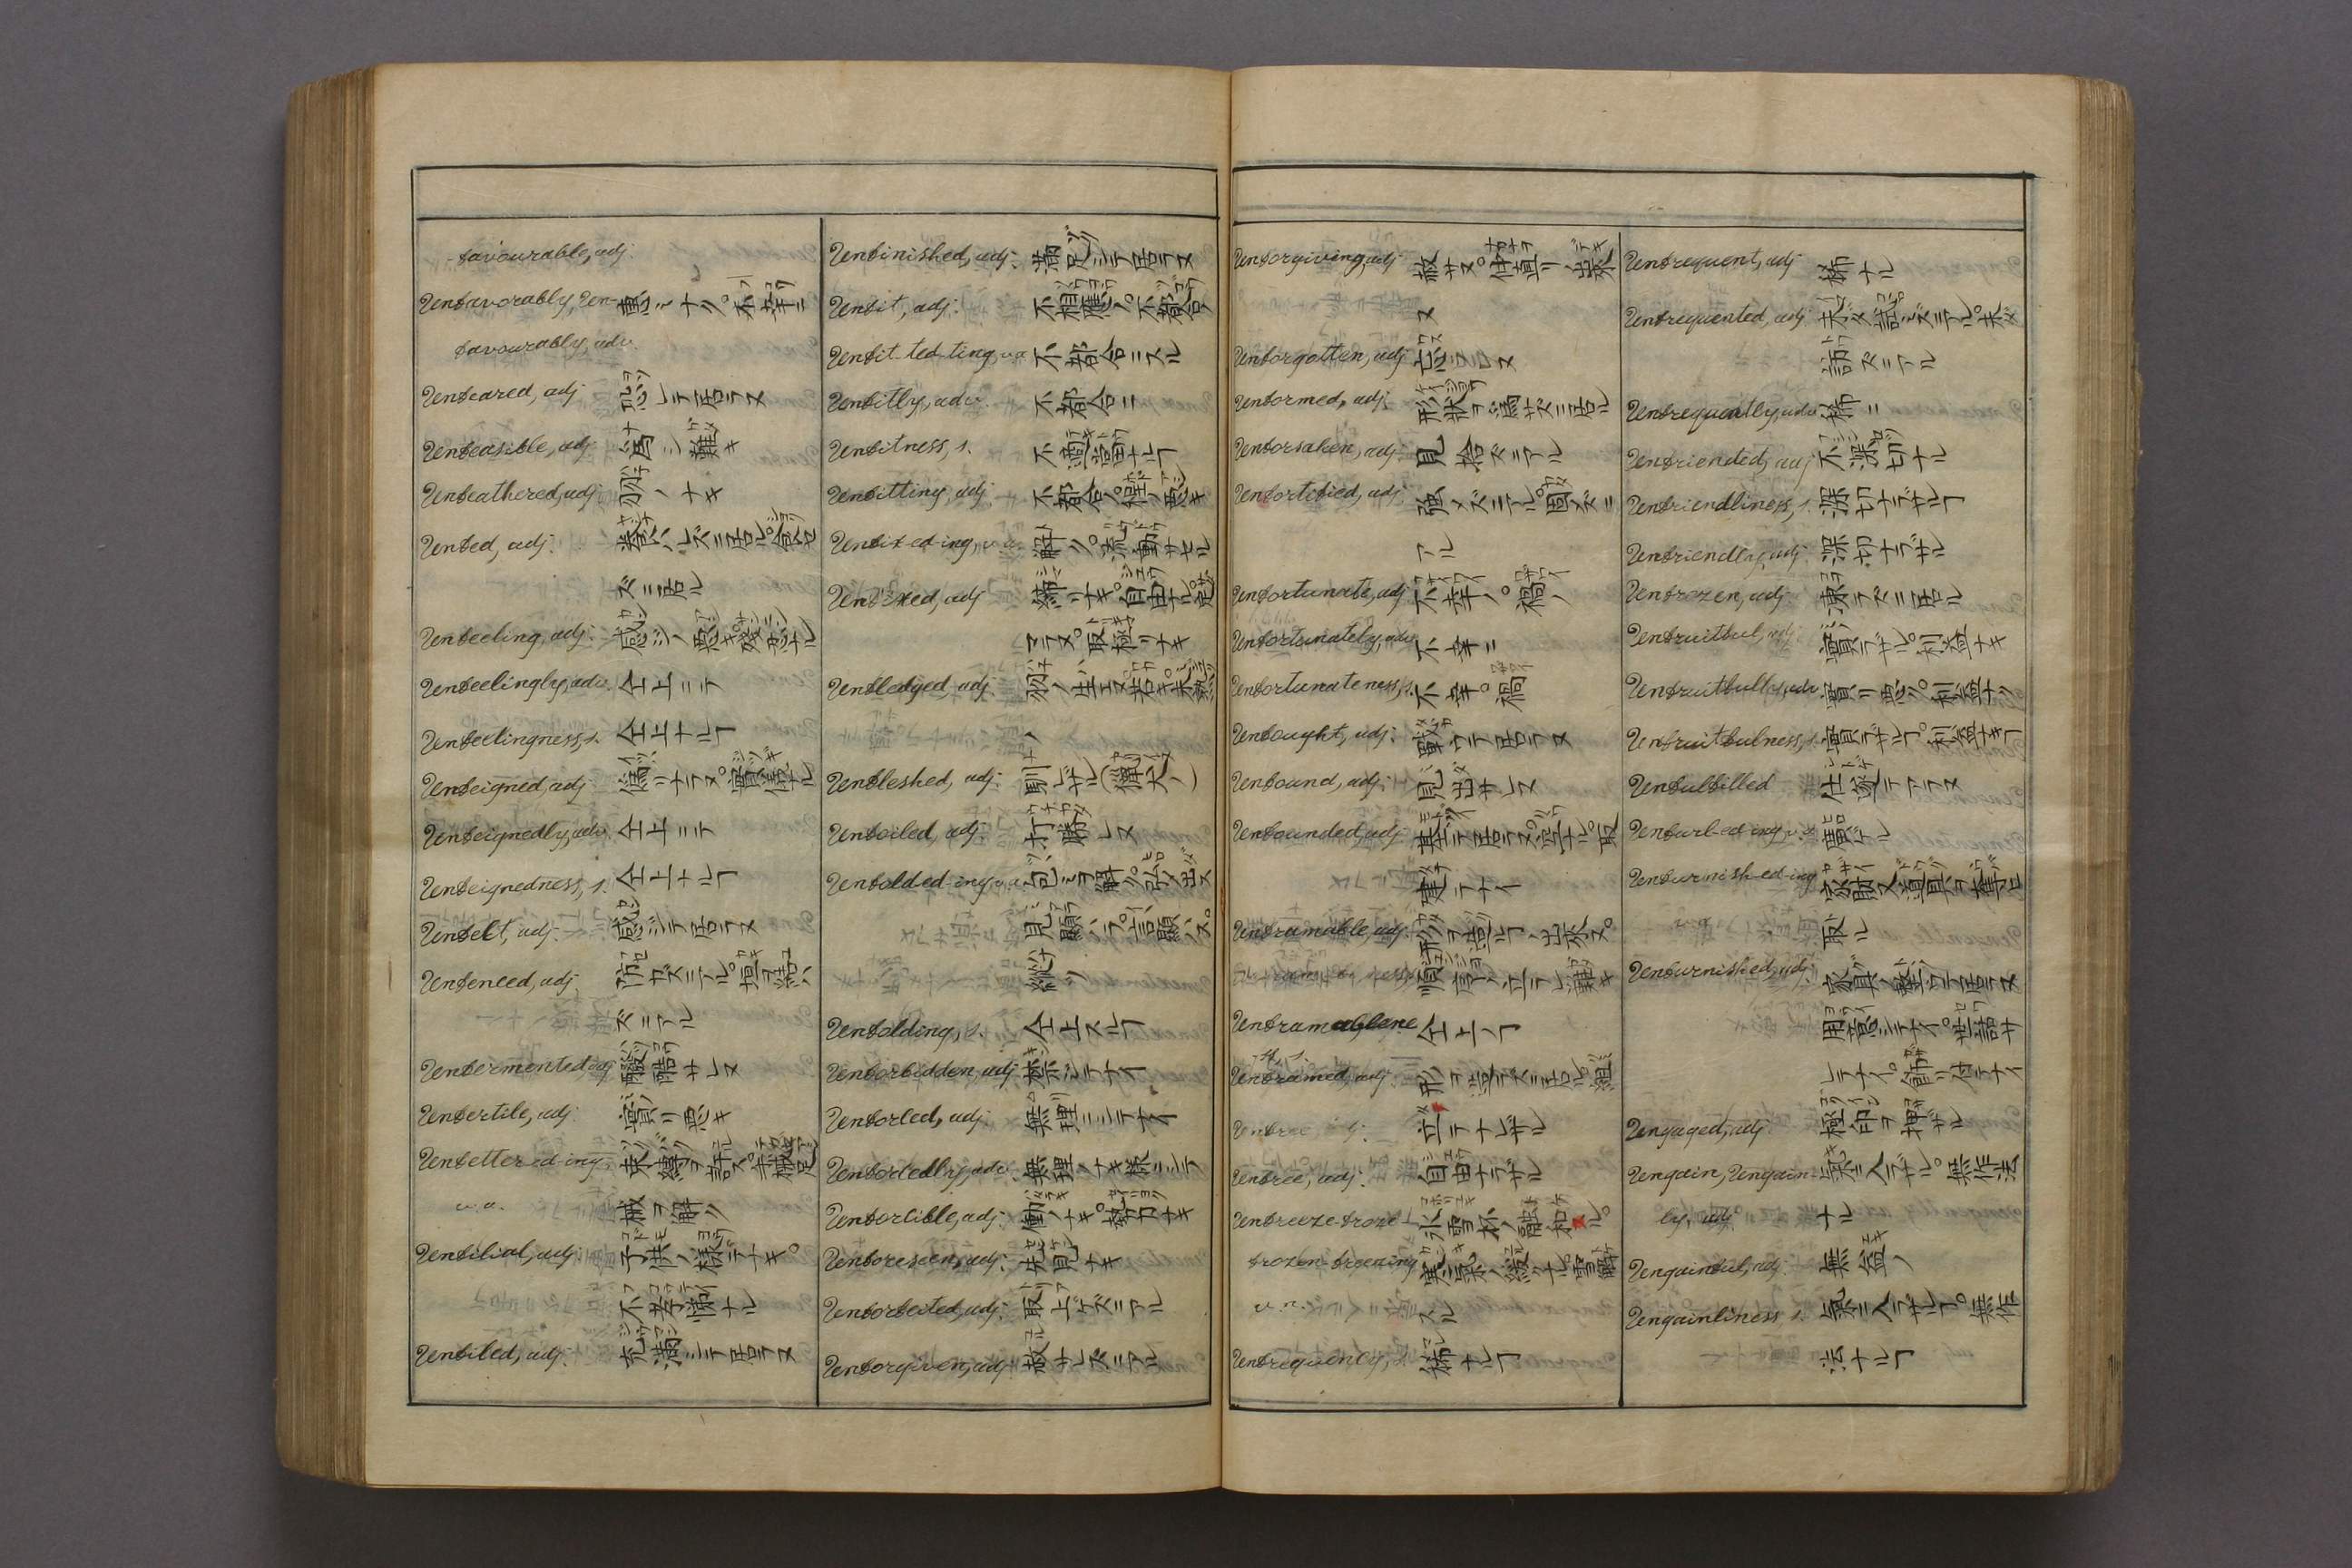 -favourable, adj.
Unfavorably, Un- 恵ミナク。不幸ニ
favourably, adv.
Unfeared, adj. 恐レテ居ラヌ
Unfeasible, adj. 為シ難キ
Unfeathered, adj. 羽ノナキ
Unfed, adj. 養ハレズニ居ル。食セ
ズニ居ル
Unfeeling, adj. 感ジノ悪キ。残忍ナル
Unfeelingly, adv. 仝上ニテ
Unfeelingness, s. 仝上ナルヿ
Unfeigned, adj. 偽リナラヌ。實情ナル
Unfeignedly, adv. 仝上ニテ
Unfeignedness, s. 仝上ナルヿ
Unfelt, adj. 感ジテ居ラヌ
Unfenced, adj. 防ガズニアル。垣ヲ結ハ
ズニアル
Unfermented, adj. 醗酷サレヌ
Unfertile, adj. 實リ悪キ
Unfetter-ed-ing, 束縛ヲ許ス。手械足
v.a. 械ヲ解ク
Unfilial, adj. 子供ノ様デナキ。
不孝ナル
Unfiled, adj. 充満シテ居ラヌ
Unfinished, adj. 満足シテ居ラヌ
Unfit, adj. 不相應ノ。不都合ノ
Unfit-ted-ting, v.a. 不都合ニスル
Unfitly, adv. 不都合ニ
Unfitness, s. 不適當ナルヿ
Unfitting, adj. 不都合ノ。程ノ悪キ
Unfix-ed-ing, v.a. 解ク。流動サセル
Unfixed, adj. 締リナキ。自由ナル。定
マラヌ。取極リナキ
Unfledged, adj. 羽ノ生エヌ。若キ。未熟
ノ
Unfleshed, adj. 馴レザル(猟犬ノ)
Unfoiled, adj. 打勝レヌ
Unfold-ed-ing, v.a. 包ミヲ解ク。弘メ出ス
見顕ハス。言顕ハス。
縦ツ
Unfolding, s. 仝上スルヿ
Unforbidden, adj. 禁ジテナイ
Unforced, adj. 無理ニシテナイ
Unforcedly, adv. 無理ノナキ様ニシテ
Unforcible, adj. 働ノナキ。勢力ナキ
Unforeseen, adj. 先見ナキ
Unforfeited, adj. 取上ゲズニアル
Unforgiven, adj. 赦サレズニアル
Unforgiving, adj. 赦サヌ。仲直リノ出来
ヌ
Unforgotten, adj. 忘ラレヌ
Unformed, adj. 形状ヲ為サズニ居ル
Unforsaken, adj. 見捨ズニアル
Unfortified, adj. 強メズニアル。固メズニ
アル
Unfortunate, adj. 不幸ノ。禍ノ
Unfortunately, adv. 不幸ニ
Unfortunateness, s. 不幸。禍
Unfought, adj. 戰ウテ居ラヌ
Unfound, adj. 見出サレヌ
Unfounded, adj. 基ヅテ居ラヌ。空ナル。取
建テナイ
Unframable, adj. 形ヲ造ルヿノ出来ヌ。
順序ノ立テレ難キ
Unframablene 仝上ノヿ
-ss, s.
Unframed, adj. 形ヲ造ラズニ居ル。組
立テナレザル
Unfree, adj. 自由ナラザル
Unfreeze-froze 氷雪杯ノ融和スル。
frozen-freezing 寒氣ノ緩クナル。雪解
v.n. スル
Unfrequency, s. 稀ナルヿ
Unfrequent, adj. 稀ナル
Unfrequented, adj. 未ダ試ミズニアル。未ダ
訪ズニアル
Unfrequently, adv. 稀ニ
Unfriended, adj. 不深切ナル
Unfriendliness, s. 深切ナラザルヿ
Unfriendly, adj. 深切ナラザル
Unfrozen, adj. 凍ラズニ居ル
Unfruitful, adj. 實ラザル。利益ナキ
Unfruitfully, adv. 實リ悪ク。利益ナク
Unfruitfulness, s. 實ラザルヿ。利益ナキヿ
Unfulfilled 仕遂テアラヌ
Unfurl-ed-ing, v.a. 廣ゲル
Unfurnish-ed-ing 家財又道具ヲ奪ヒ
v.a. 取ル
Unfurnished, adj. 家貨ノ整ウテ居ラヌ
用意シテナイ。世話サ
レテナイ。飾リ付テナイ
Ungaged, adj. 極印ヲ押ザル
Ungain, Ungain- 氣ニ入ラザル。無作法
ly, adj. ナル
Ungainful, adj. 無益ノ
Ungainliness, s. 氣ニ入ラザルヿ。無作
法ナルヿ